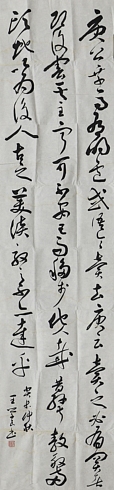 庾公乘馬有的盧或語令賣去庾云賣之必有買者
即復害其主寧可不安己而移於他人哉昔孫叔敖殺兩
頭蛇以為後人古之美談效之不亦達乎
癸未仲秋
王 書